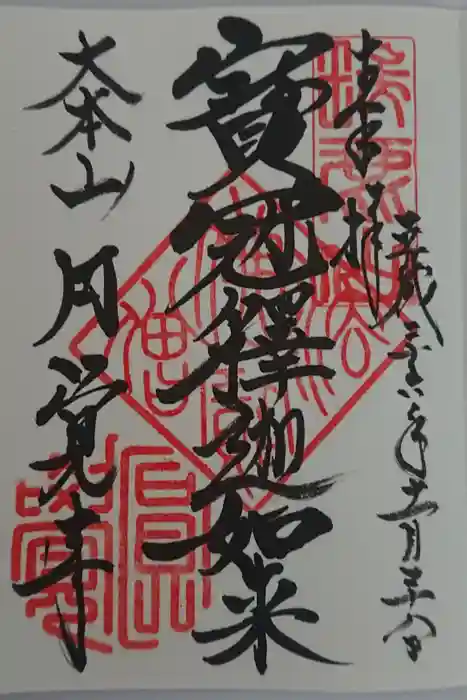 奉拝
平成二十八年十一月二十八日
寳冠釋迦如来
大本山円覚寺
圓覺